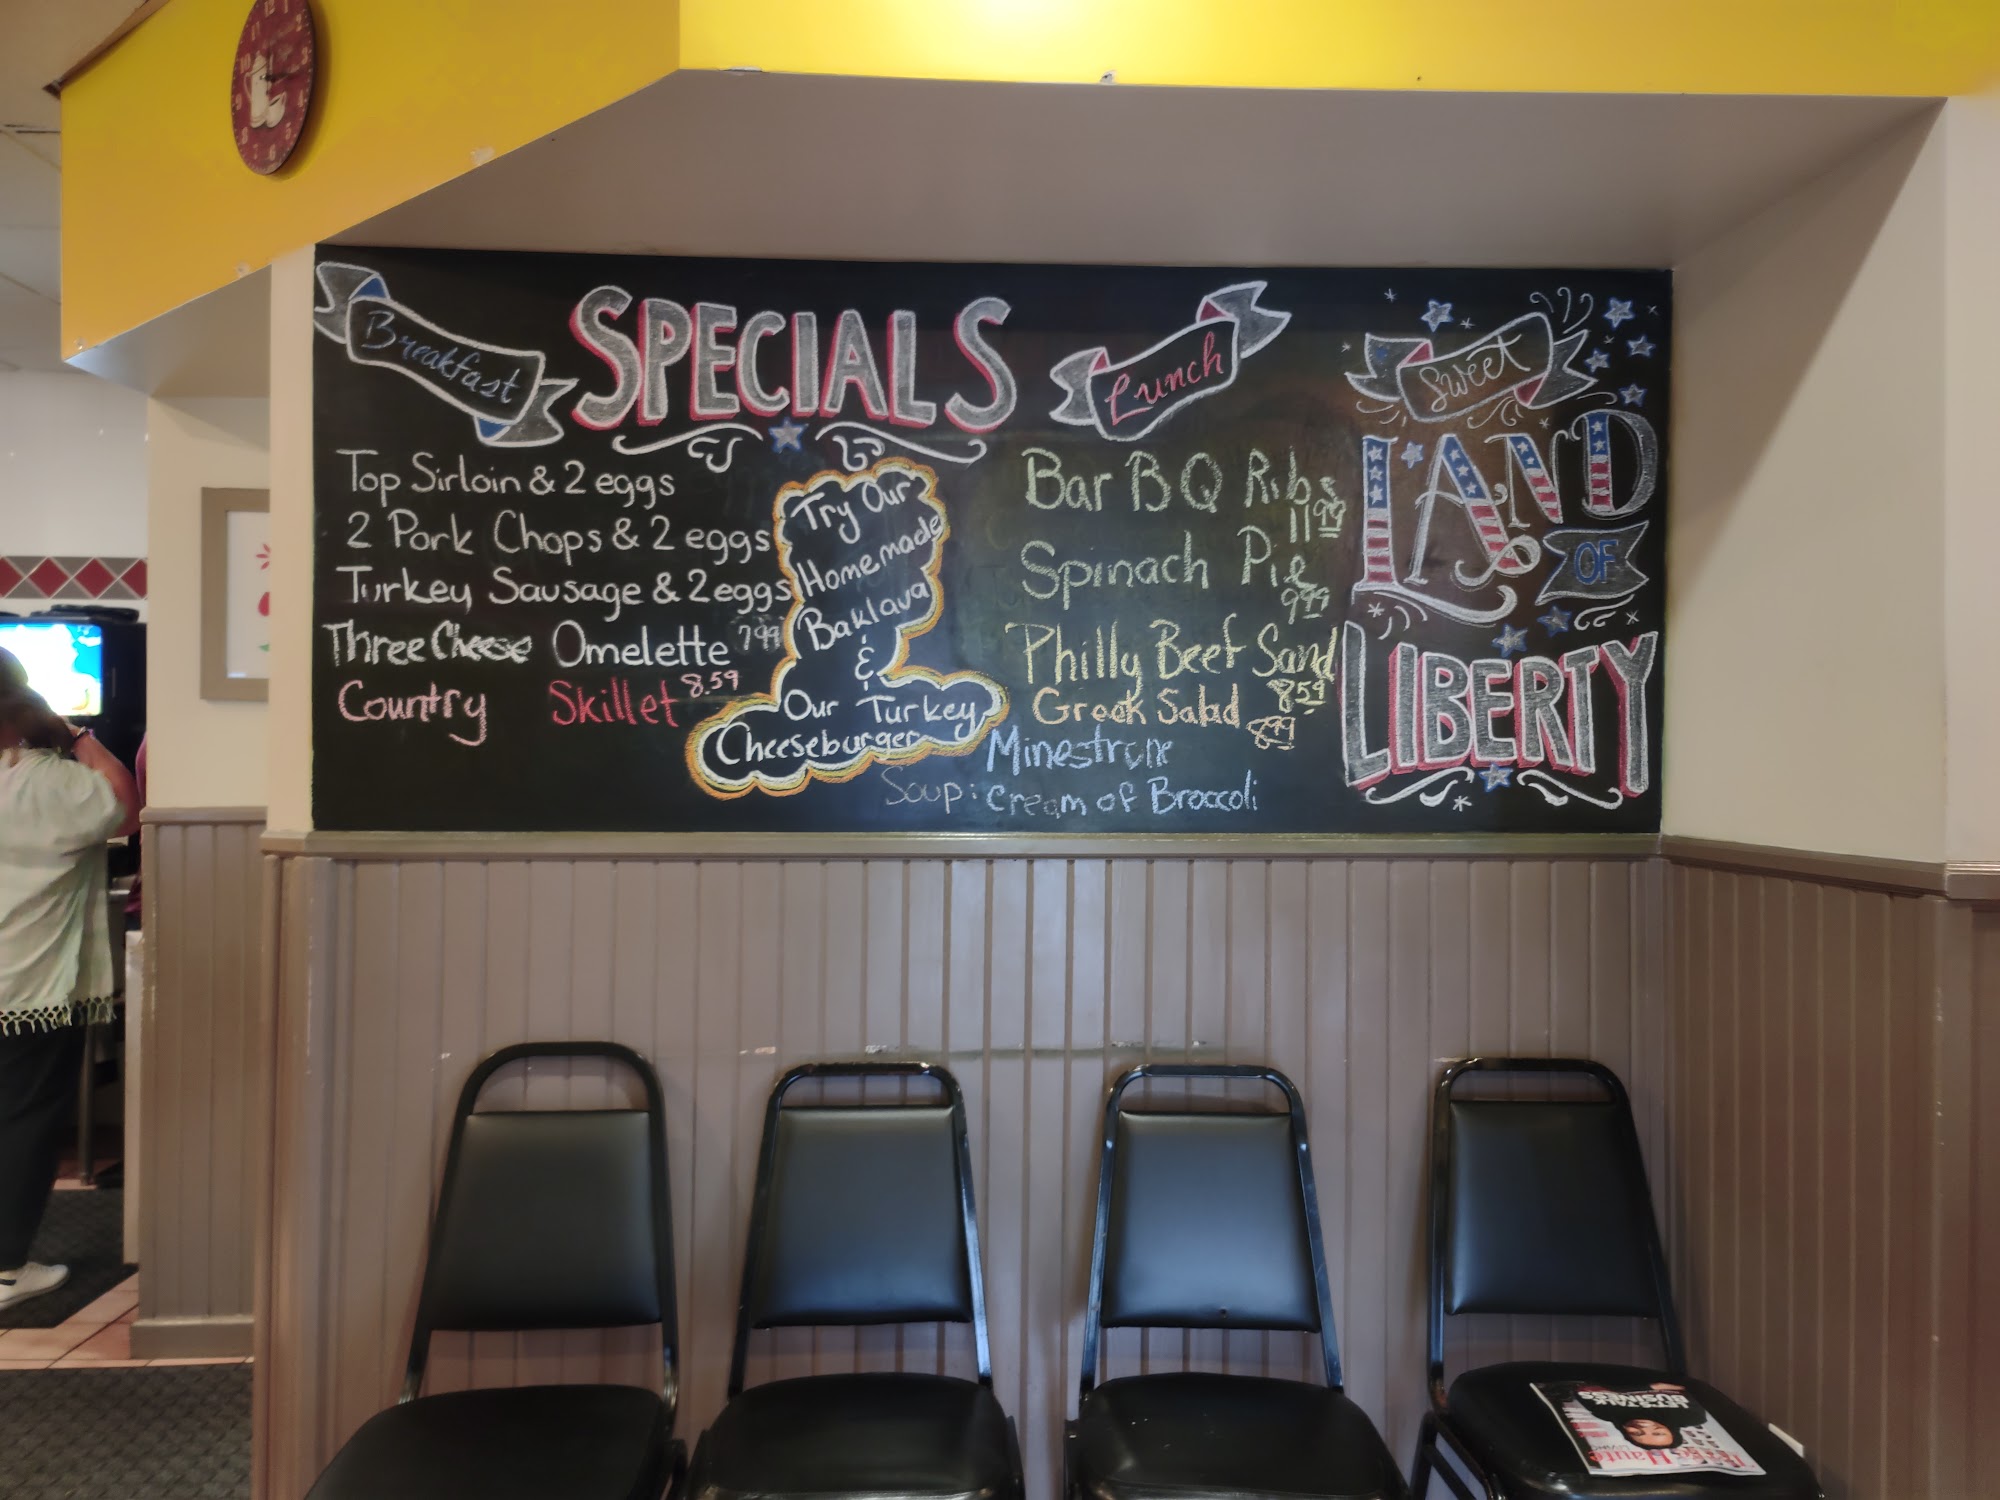 Breakfast
SPECIALS
Lunch
Top Sirloin & 2 eggs
2 Pork Chops & 2 eggs
Turkey Sausage & 2 eggs
Three Cheese Omelette 7.99
Country Skillet 8.59
Try Our
Homemade
Baklava
&
Our Turkey
Cheeseburger
Bar B Q Ribs
11.99
Spinach Pie
9.99
Philly Beef Sand
8.59
Greek Salad
8.99
Minestrone
Soup: Cream of Broccoli
SWEET
LAND
OF
LIBERTY
LET'S TALK
BUSINESS
Haute
LIVING